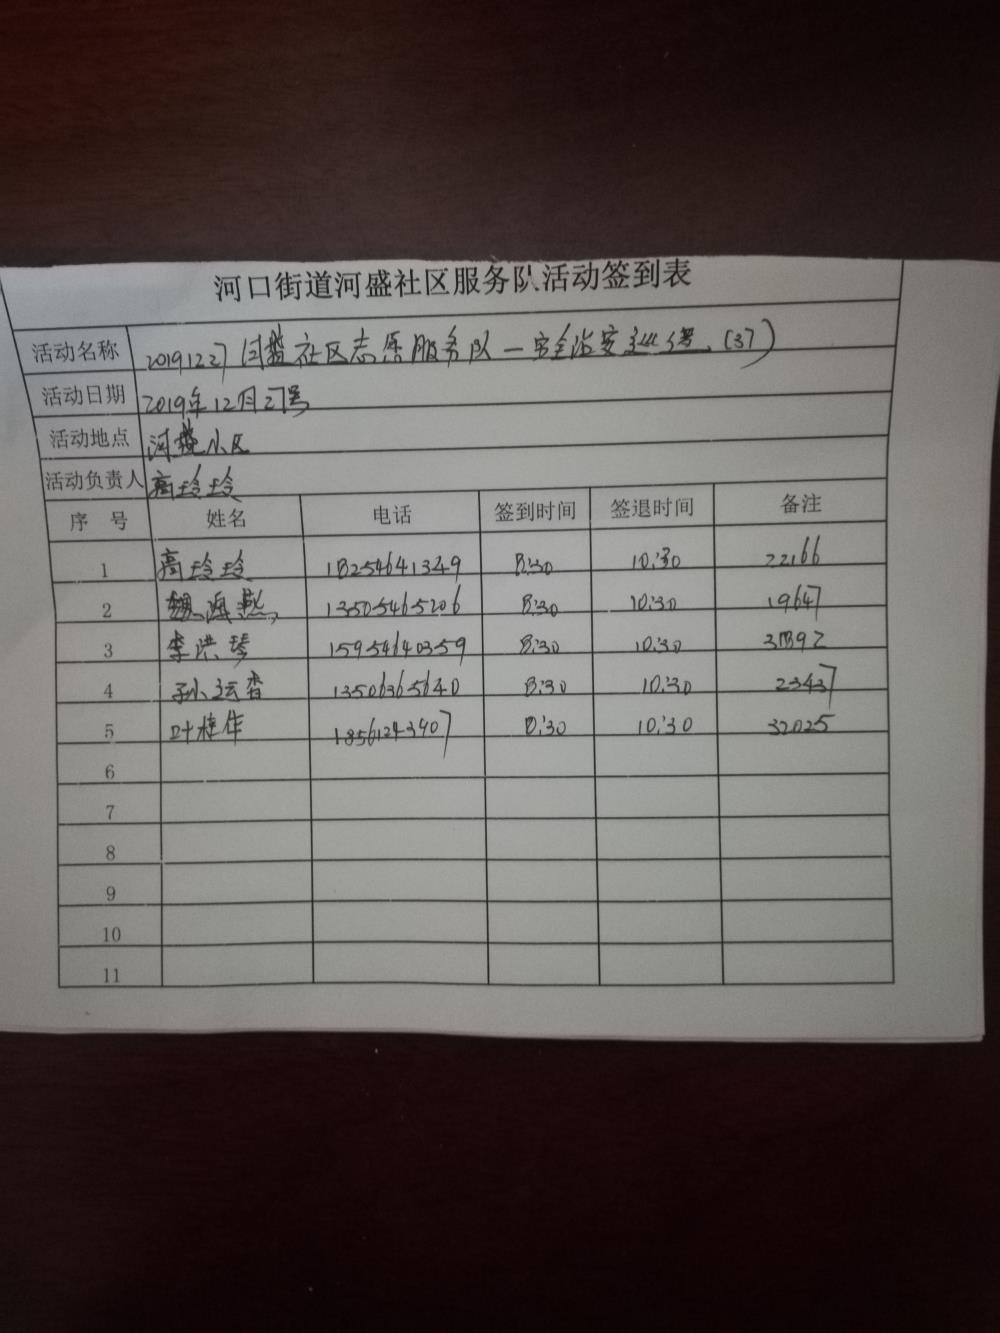 河口街道河盛社区服务队活动签到表
活动名称 20191227河盛社区志愿服务队一安全治安巡逻.(37)
活动日期 2019年12月27号
活动地点 河盛小区
活动负责人 高玲玲
序号 姓名 电话 签到时间 签退时间 备注
1 高玲玲 18254641349 8:30 10:30 22166
2 魏海燕 13505465206 8:30 10:30 19647
3 李洪琴 15954640359 8:30 10:30
4 孙云香 13506365640 8:30 10:30 23437
5 叶桂华 18561243907 8:30 10:30 32025
6
7
8
9
10
11